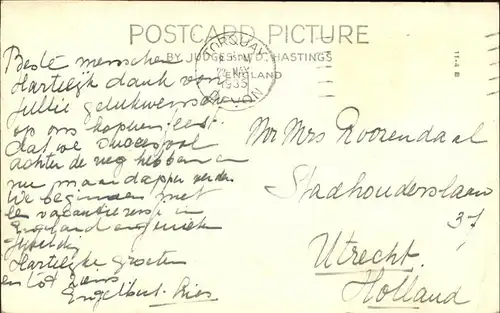 POSTCARD PICTURE
BY JUDGES LTD, HASTINGS
ENGLAND
TORQUAY
MAY
1935
DEVON
11-4 B
Beste menschen
Hartelijk dank voor
Jullie gelukwenschen
op ons koperen feest
dat we
achter de rug hebben en
nu maar dapper verder
We beginnen met
vacantiereis in
Engeland en geniet
Hartelijke groeten
en tot ziens
Engelbert
Mr Mrs Roozendaal
Stadhouderslaan
37
Utrecht
Holland